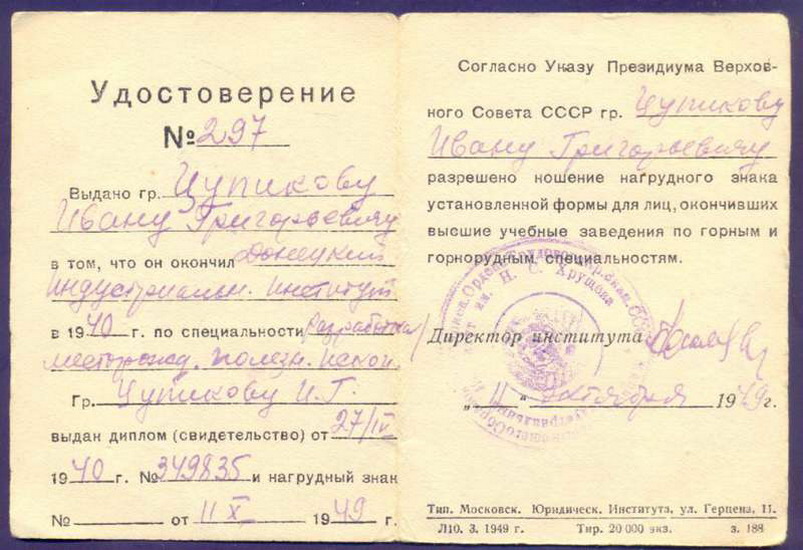 Удостоверение
№ 297
Выдано гр. Цупикову
Ивану Григорьевичу
в том, что он окончил Донецкий
Индустриальн. Институт
в 1940 г. по специальности разработка
месторожд. полезн. ископ.
Гр. Цупикову И.Г.
выдан диплом (свидетельство) от 27/IV
1940 г. № 349835 и нагрудный знак
№ от 11 X 1949 г.
Согласно Указу Президиума Верхов-
ного Совета СССР гр. Цупикову
Ивану Григорьевичу
разрешено ношение нагрудного знака
установленной формы для лиц, окончивших
высшие учебные заведения по горным и
горнорудным специальностям.
им. Н. С. Хрущова
Директор института
„11" октября 1949 г.
Тип. Московск. Юридическ. Института, ул. Герцена, 11.
Л10. 3. 1949 г. Тир. 20 000 экз. з. 188